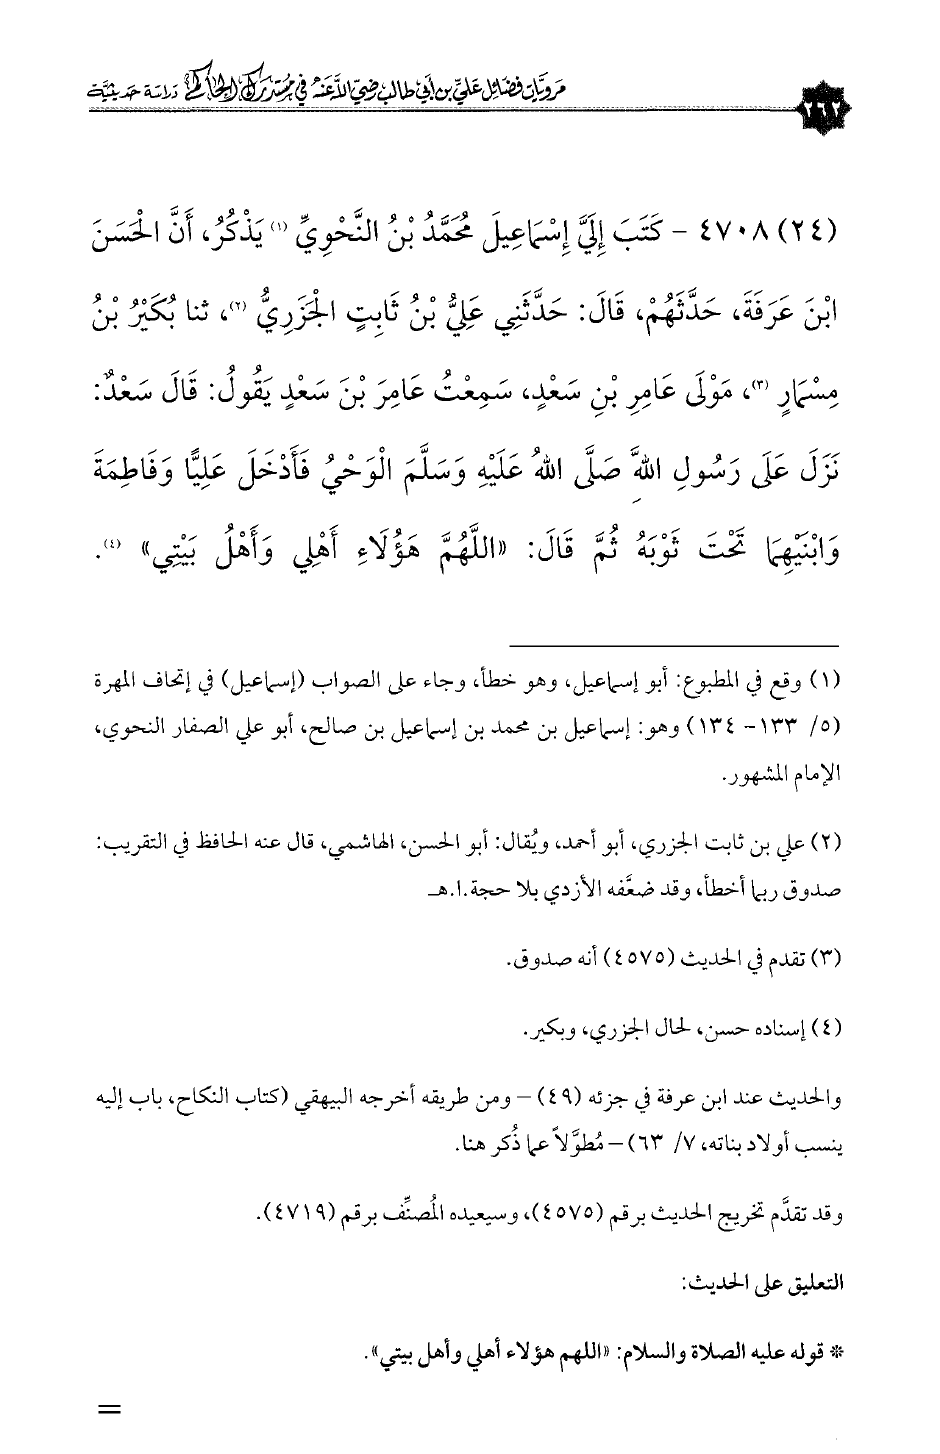 مرويات فضائل علي بن أبي طالب رضي الله عنه في مستدرك الحاكم دراسة حديثية
٢٦٢
(٢٤) ٤٧٠٨ - كَتَبَ إِلَيَّ إِسْمَاعِيلَ مُحَمَّدُ بْنُ النَّحْوِيِّ (١) يَذْكُرُ، أَنَّ الْحَسَنَ
ابْنَ عَرَفَةَ، حَدَّثَهُمْ، قَالَ: حَدَّثَنِي عَلِيُّ بْنُ ثَابِتٍ الْجَزَرِيُّ (٢)، ثنا بُكَيْرُ بْنُ
مِسْمَارٍ (٣)، مَوْلَى عَامِرِ بْنِ سَعْدٍ، سَمِعْتُ عَامِرَ بْنَ سَعْدٍ يَقُولُ: قَالَ سَعْدٌ:
نَزَلَ عَلَى رَسُولِ اللهَِّ صَلَّى اللهُ عَلَيْهِ وَسَلَّمَ الْوَحْيُ فَأَدْخَلَ عَلِيًّا وَفَاطِمَةَ
وَابْنَيْهِمَا تَحْتَ ثَوْبَهُ ثُمَّ قَالَ: «اللَّهُمَّ هَؤُلَاءِ أَهْلِي وَأَهْلُ بَيْتِي» (٤).
(١) وقع في المطبوع: أبو إسماعيل، وهو خطأ، وجاء على الصواب (إسماعيل) في إتحاف المهرة
(٥/ ١٣٣- ١٣٤) وهو: إسماعيل بن محمد بن إسماعيل بن صالح، أبو علي الصفار النحوي،
الإمام المشهور.
(٢) علي بن ثابت الجزري، أبو أحمد، ويُقال: أبو الحسن، الهاشمي، قال عنه الحافظ في التقريب:
صدوق ربما أخطأ، وقد ضعَّفه الأزدي بلا حجة.ا.هـ
(٣) تقدم في الحديث (٤٥٧٥) أنه صدوق.
(٤) إسناده حسن، لحال الجزري، وبكير.
والحديث عند ابن عرفة في جزئه (٤٩) – ومن طريقه أخرجه البيهقي (كتاب النكاح، باب إليه
ينسب أولاد بناته، ٧/ ٦٣) – مُطوَّلاً عما ذُكر هنا.
وقد تقدَّم تخريج الحديث برقم (٤٥٧٥)، وسيعيده المُصنِّف برقم (٤٧١٩).
التعليق على الحديث:
* قوله عليه الصلاة والسلام: «اللهم هؤلاء أهلي وأهل بيتي».
=